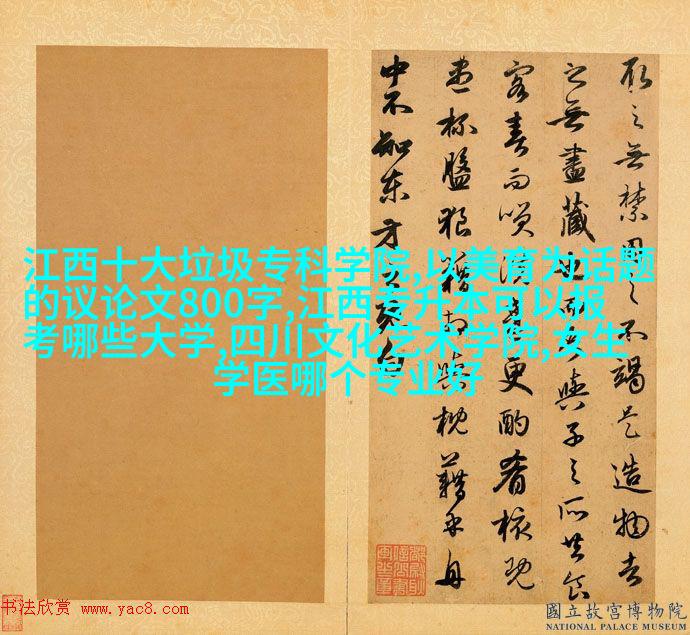 取之無禁用之不竭是造物者
之無盡藏也而吾與子之所共食
客喜而笑洗盞更酌肴核既
盡杯盤狼籍相與枕藉乎舟
中不知東方之既白
江西十大垃圾专科学院,以美育为话题
的议论文800字,江西专升本可以报
考哪些大学,四川文化艺术学院,女生
学医哪个专业好
书法欣赏 www.yac8.com
國立故宮博物院
NATIONAL PALACE MUSEUM